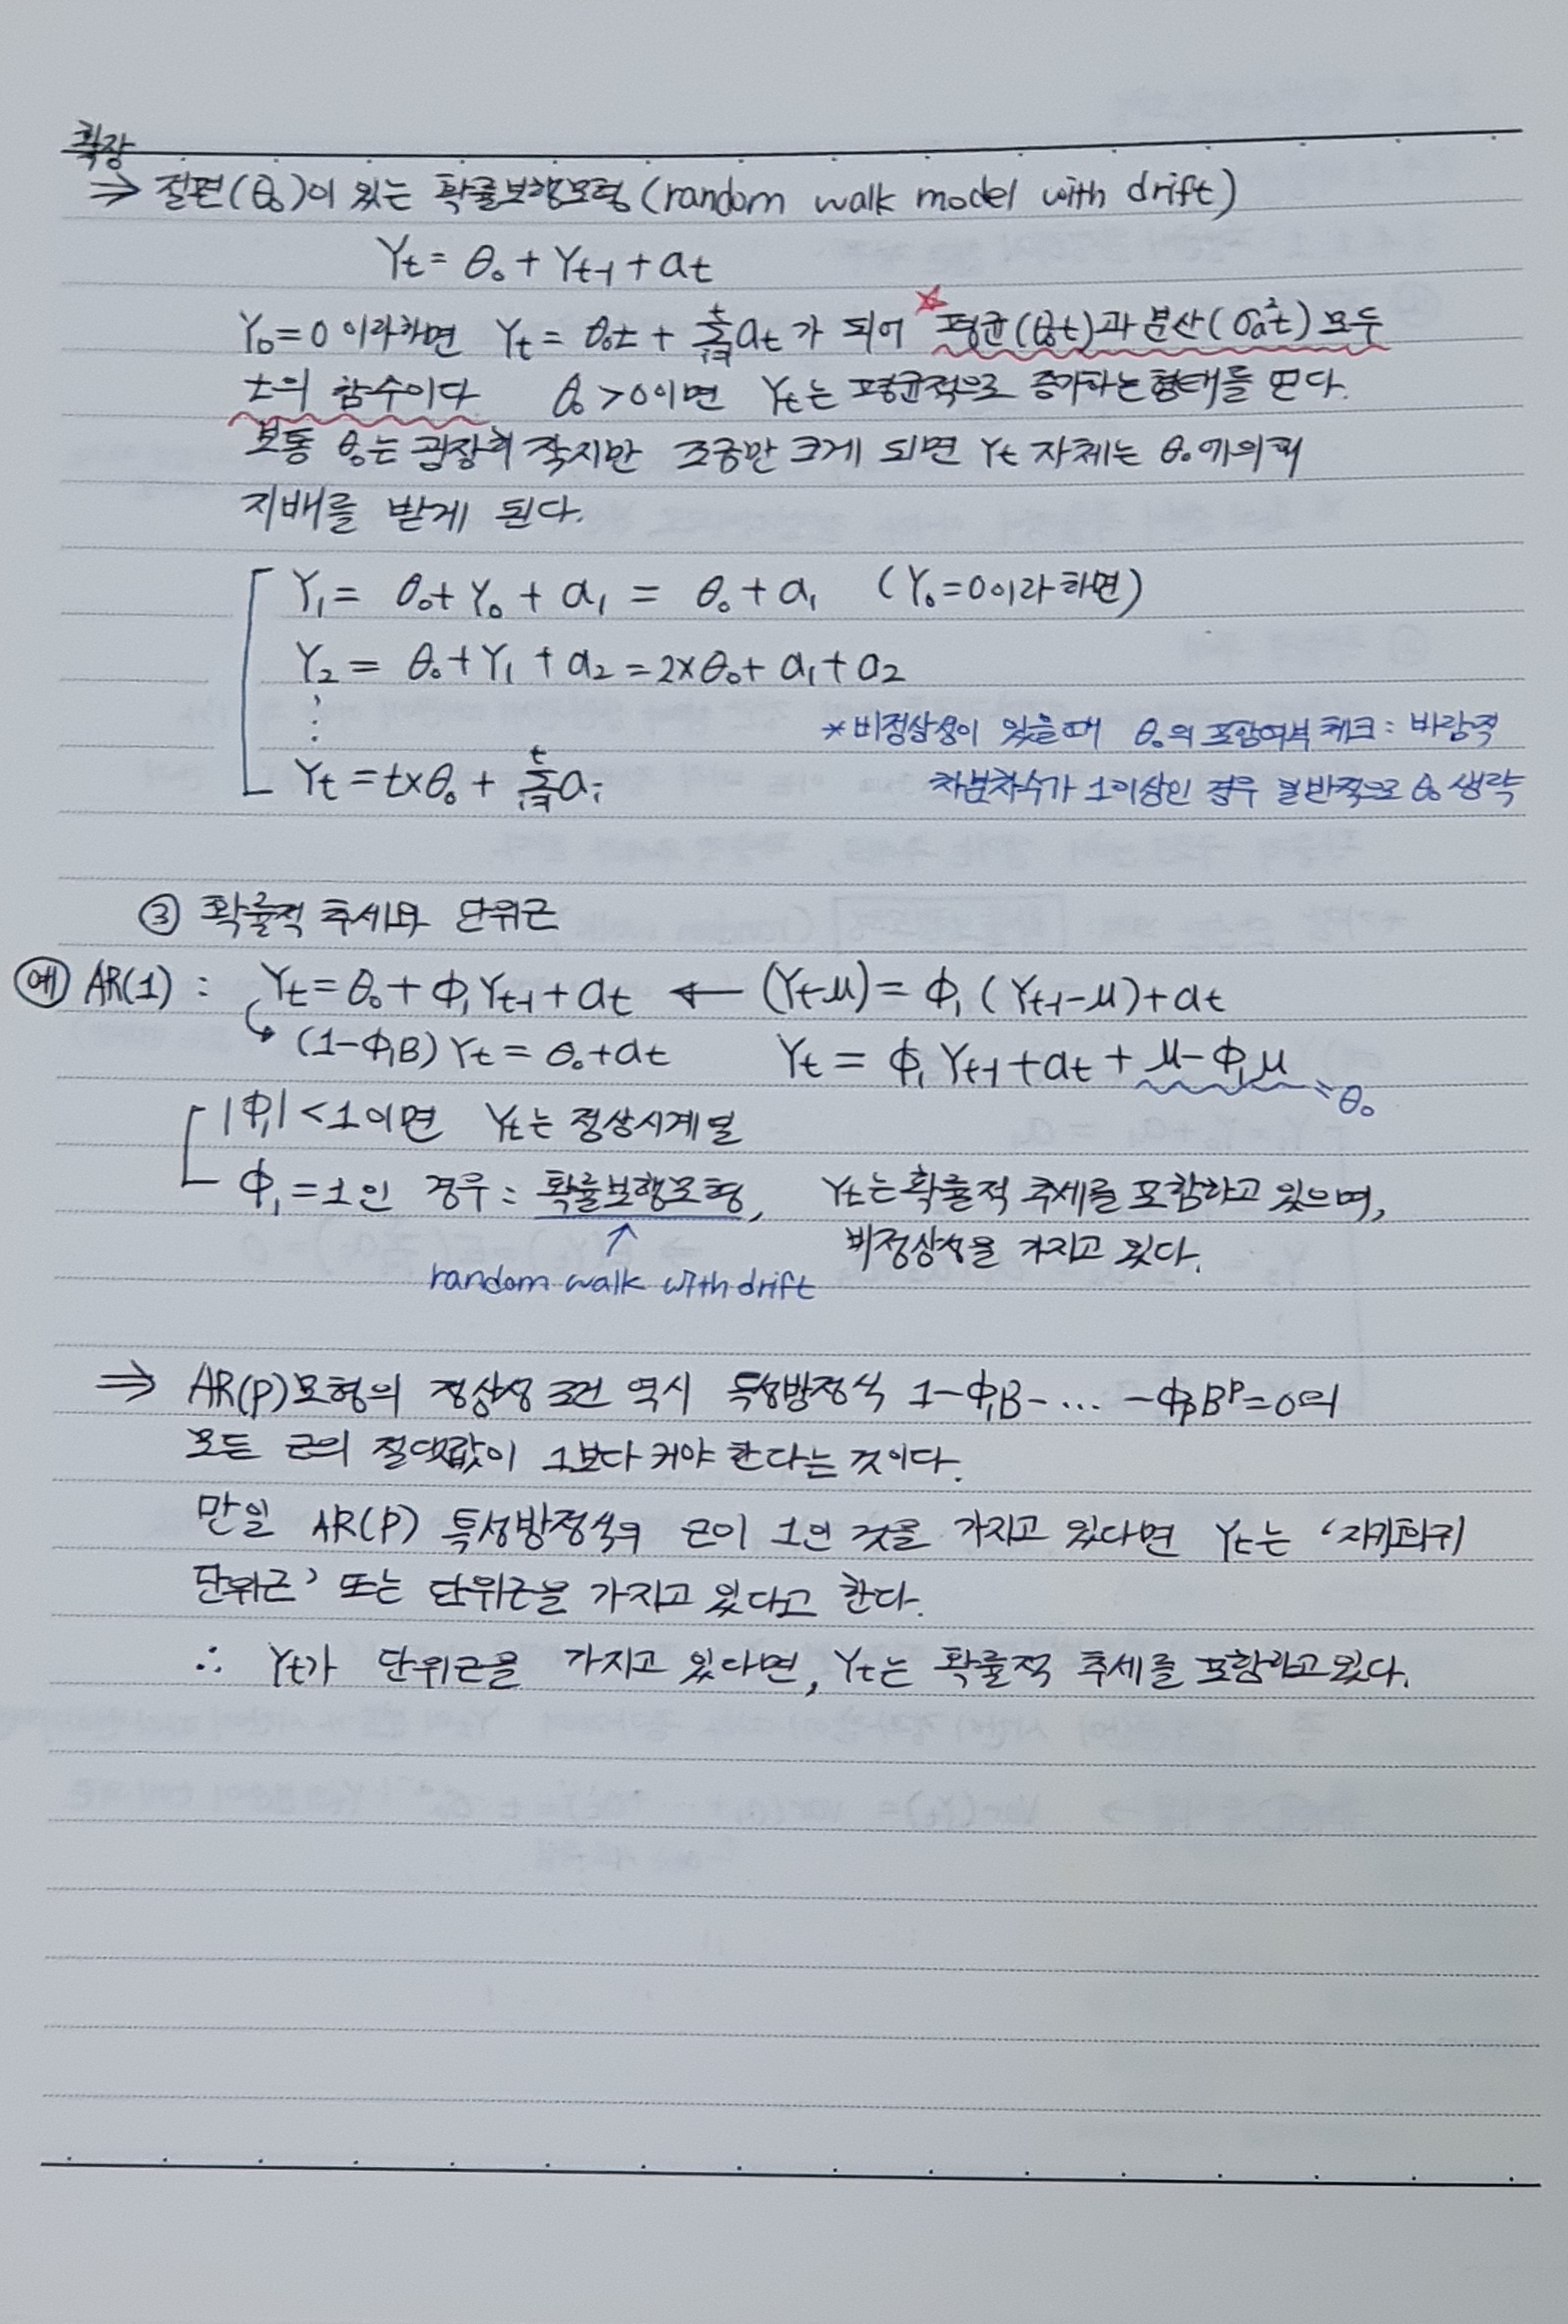 확장
⇒ 절편(θ₀)이 있는 확률보행모형 (random walk model with drift)
Yt = θ₀ + Yt-1 + at
Y₀=0 이라하면 Yt = θ₀t + Σ(i=1..t) at 가 되어 ☆ 평균(θ₀t)과 분산(σa²t) 모두
t의 함수이다. θ₀>0이면 Yt는 평균적으로 증가하는 형태를 띤다.
보통 θ₀는 굉장히 작지만 조금만 크게 되면 Yt 자체는 θ₀에의해
지배를 받게 된다.
Y₁ = θ₀+Y₀ + a₁ = θ₀ + a₁ (Y₀=0이라 하면)
Y₂ = θ₀+Y₁ + a₂ = 2×θ₀ + a₁+a₂
⋮
* 비정상성이 있을때 θ₀의 포함여부 체크: 바람직
Yt = t×θ₀ + Σ(i=1..t) ai
차분차수가 1이상인 경우 일반적으로 θ₀ 생략
③ 확률적 추세와 단위근
예) AR(1) : Yt = θ₀ + ϕ₁Yt-1 + at ← (Yt-μ) = ϕ₁(Yt-1-μ)+at
↳ (1-ϕ₁B)Yt = θ₀+at Yt = ϕ₁Yt-1+at + μ-ϕ₁μ = θ₀
|ϕ₁|<1이면 Yt는 정상시계열
ϕ₁=1인 경우: 확률보행모형, Yt는 확률적 추세를 포함하고 있으며,
비정상성을 가지고 있다.
↑
random walk with drift
⇒ AR(p)모형의 정상성 조건 역시 특성방정식 1-ϕ₁B-… -ϕpB^p=0의
모든 근의 절대값이 1보다 커야 한다는 것이다.
만일 AR(p) 특성방정식의 근이 1인 것을 가지고 있다면 Yt는 ‘자기회귀
단위근’ 또는 단위근을 가지고 있다고 한다.
∴ Yt가 단위근을 가지고 있다면, Yt는 확률적 추세를 포함하고있다.